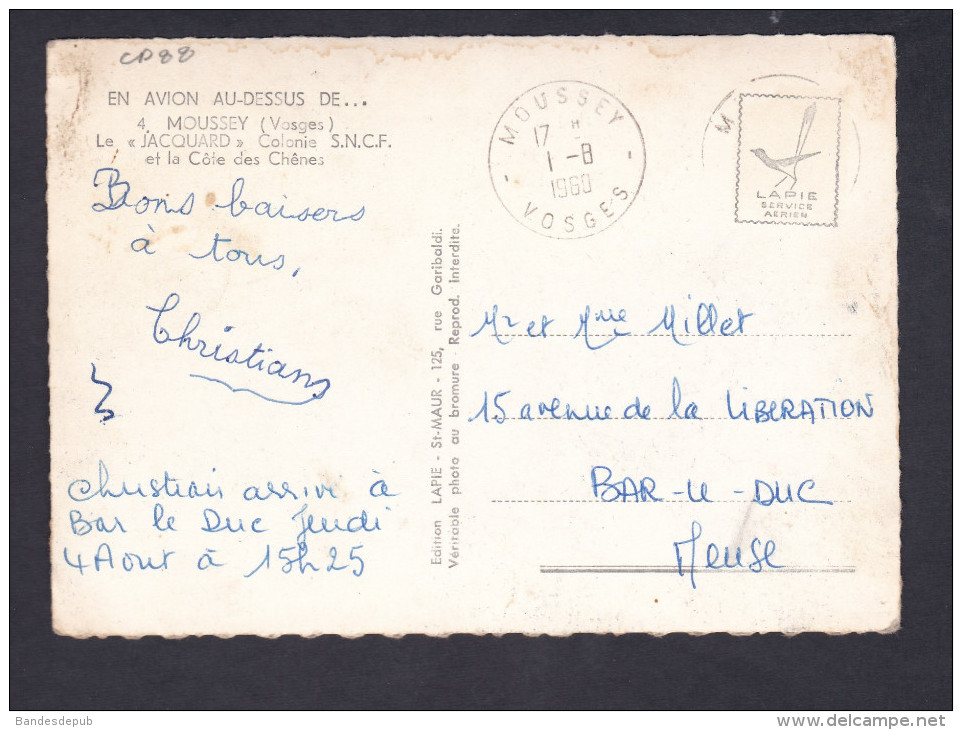 CP88
EN AVION AU-DESSUS DE...
4. MOUSSEY (Vosges)
Le « JACQUARD » Colonie S.N.C.F.
et la Côte des Chênes
Bons baisers
à tous,
Christians
Christian arrive à
Bar le Duc Jeudi
4 Aout à 15h25
Edition LAPIE - St-MAUR - 125, rue Garibaldi.
Véritable photo au bromure - Reprod. interdite.
MOUSSEY
17 H
1 - 8
1960
VOSGES
M
LAPIE
SERVICE
AERIEN
Mr et Mme Millet
15 avenue de la LIBERATION
BAR-LE-DUC
Meuse
Bandesdepub
delcampe.net